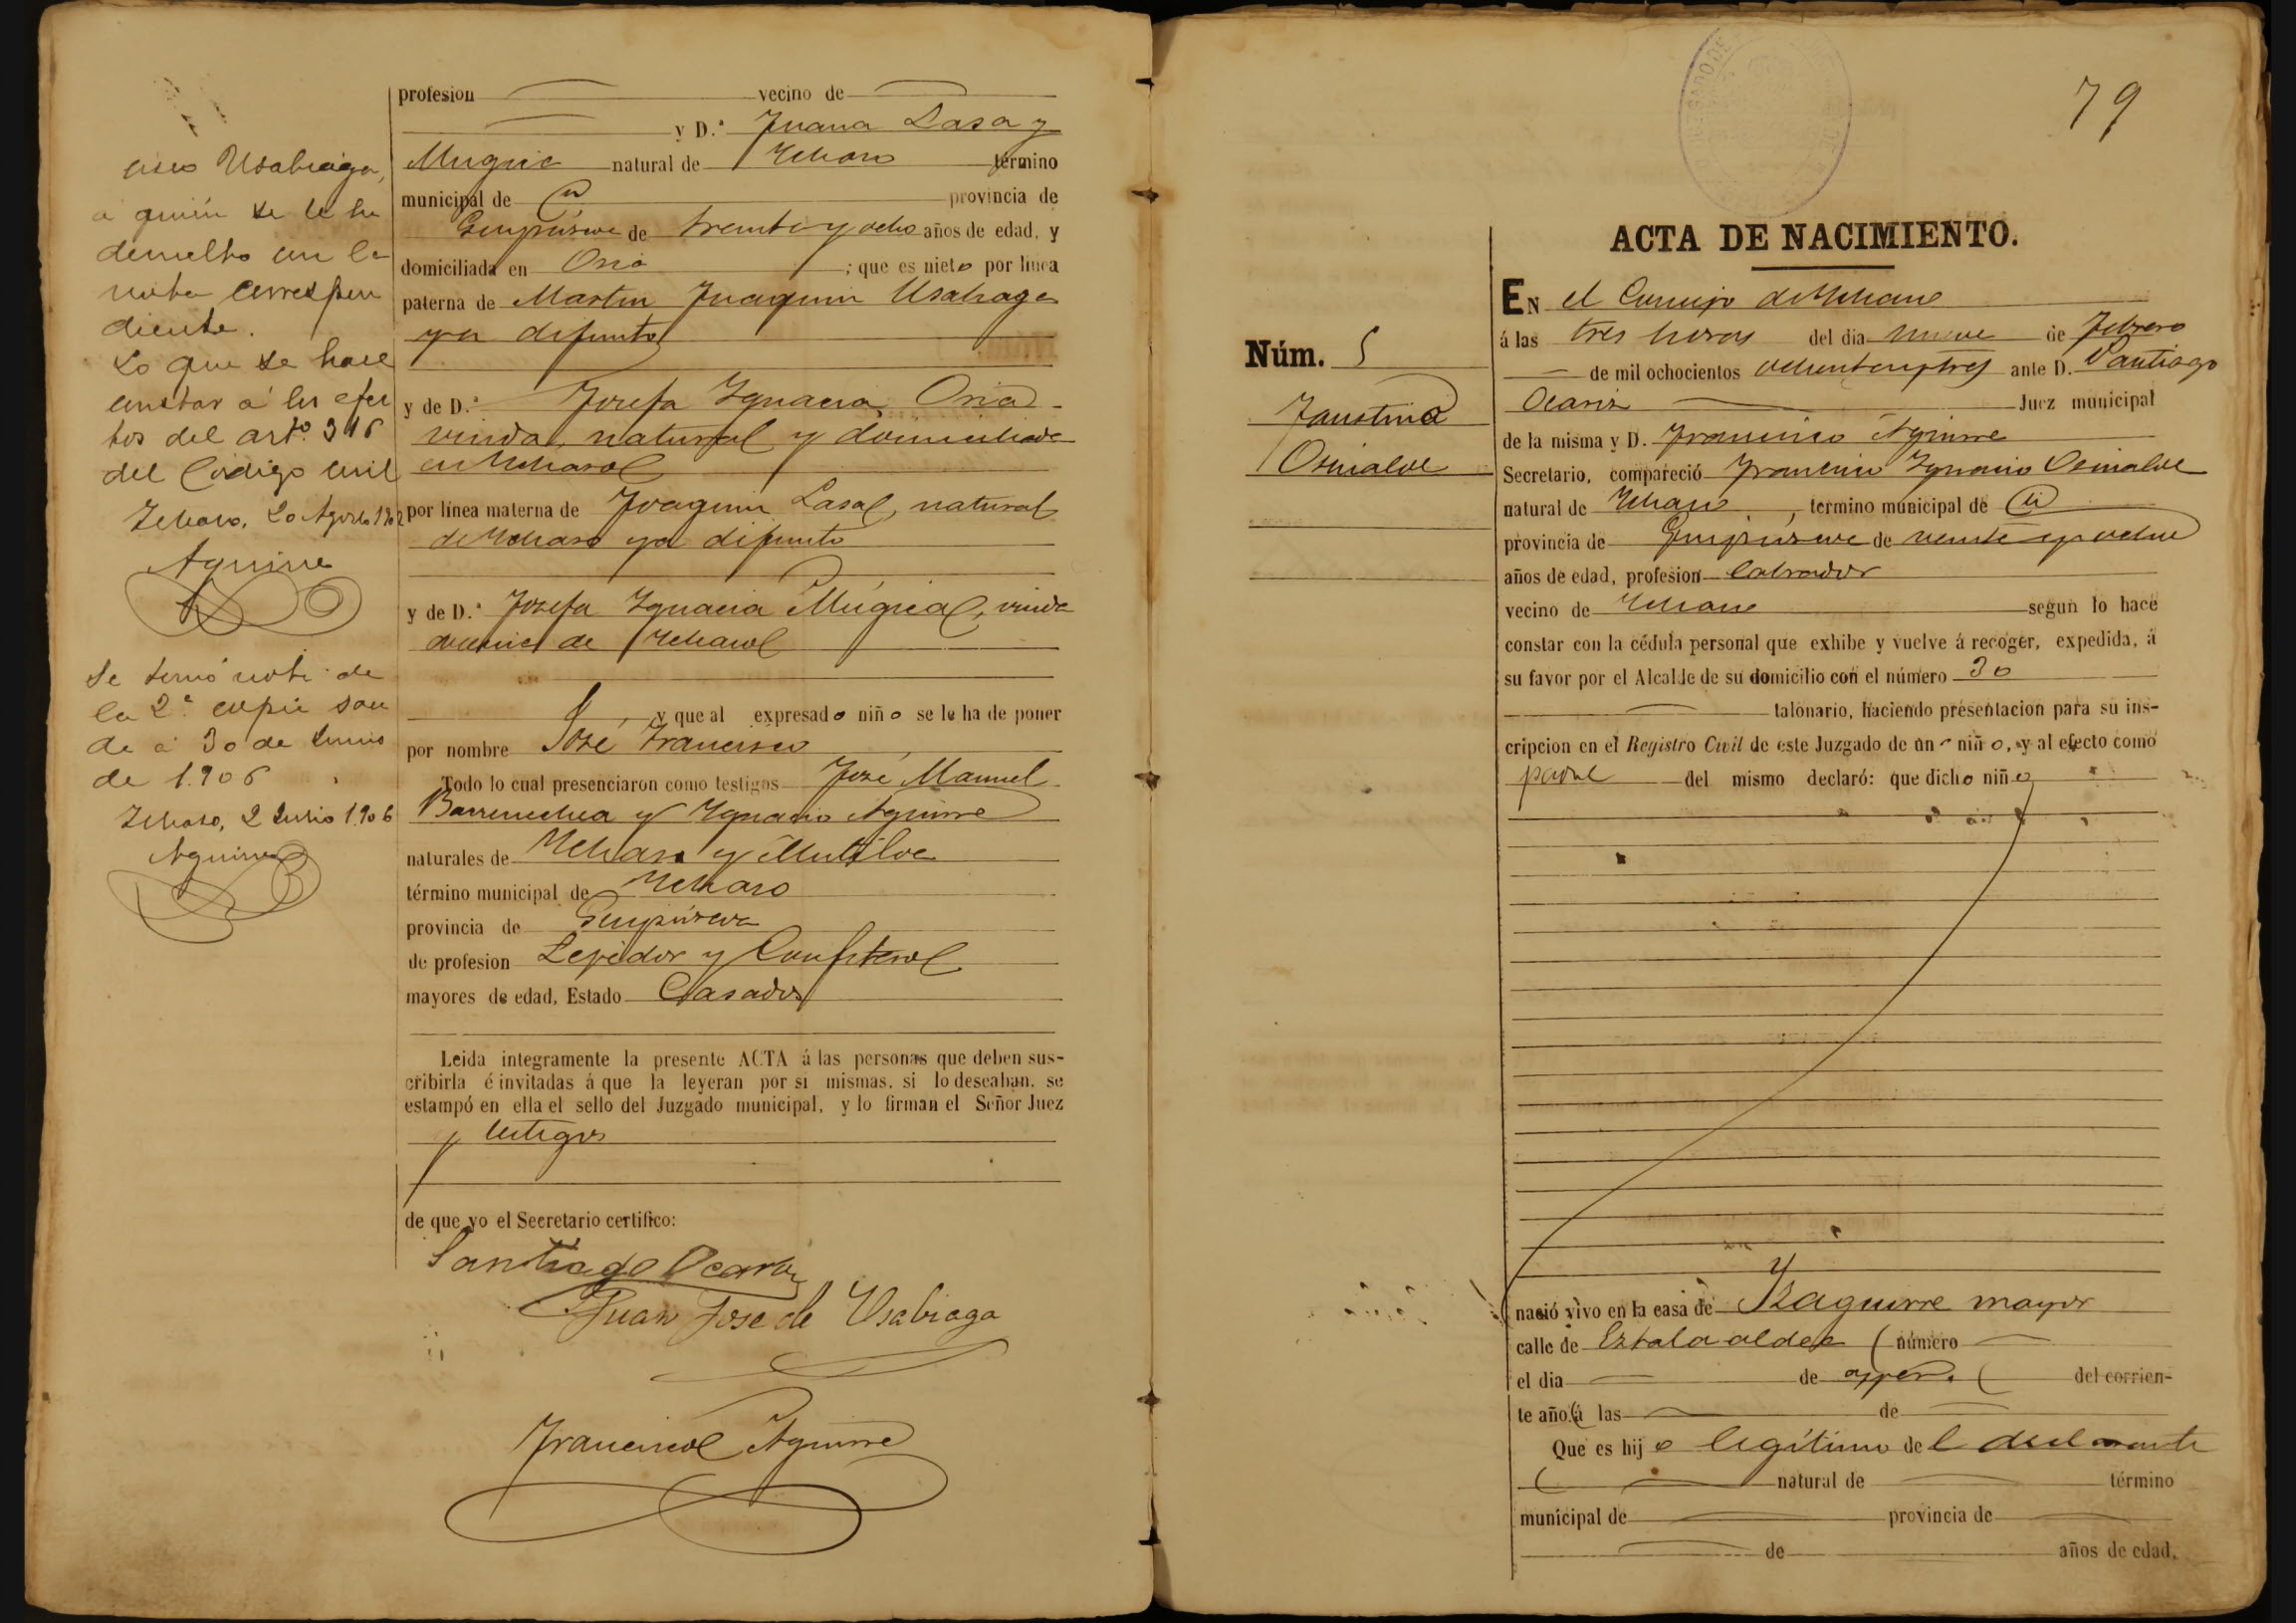 cisco Usabiaga,
a quien se le ha
devuelto con la
nota correspon
diente.
Lo que se hace
constar á los efec
tos del artº. 316
del Código civil
Ichaso, 20 Agosto 1902
Aguirre
Se tomó nota de
la 2ª copia
de á 30 de Junio
de 1.906
Ichaso, 2 Julio 1.906
Aguirre
profesion vecino de
y D.ª Juana Lasa y
Mugica natural de Ichaso término
municipal de id provincia de
Guipúzcoa de treinta y ocho años de edad, y
domiciliada en Oria ; que es nieto por línea
paterna de Martin Juaquin Usabiaga
ya difunto
y de D.ª Josefa Ygnacia Oria
viuda, natural y domiciliada
en Ichaso
por línea materna de Joaquin Lasa, natural
de Ichaso ya difunto
y de D.ª Josefa Ygnacia Múgica, viuda
vecina de Ichaso
y que al expresado niño se le ha de poner
por nombre José Francisco
Todo lo cual presenciaron como testigos José Manuel
Barrenechea y Ygnacio Aguirre
naturales de Ichaso y Mutiloa
término municipal de Ichaso
provincia de Guipúzcoa
de profesion Tejedor y Confitero
mayores de edad, Estado Casados
Leida integramente la presente ACTA á las personas que deben sus-
cribirla é invitadas á que la leyeran por si mismas, si lo deseaban, se
estampó en ella el sello del Juzgado municipal, y lo firman el Señor Juez
y testigos
de que yo el Secretario certifico:
Santiago Ocariz
Juan Jose de Usabiaga
Francisco Aguirre
79
ACTA DE NACIMIENTO.
Núm. 5
Faustino
Osinalde
EN el Concejo de Ichaso
á las tres horas del dia nueve de Febrero
de mil ochocientos ochentaytres ante D. Santiago
Ocariz Juez municipal
de la misma y D. Francisco Aguirre
Secretario, compareció Francisco Ygnacio Osinalde
natural de Ichaso, término municipal de id
provincia de Guipúzcoa de veinte y ocho
años de edad, profesion labrador
vecino de Ichaso segun lo hace
constar con la cédula personal que exhibe y vuelve á recoger, expedida, á
su favor por el Alcalde de su domicilio con el número 30
talonario, haciendo presentacion para su ins-
cripcion en el Registro Civil de este Juzgado de un niño, y al efecto como
padre del mismo declaró: que dicho niño
nació vivo en la casa de Yzaguirre mayor
calle de Eztala aldea número
el dia de ayer. del corrien-
te año á las de
Que es hijo legítimo del declarante
natural de término
municipal de provincia de
de años de edad,